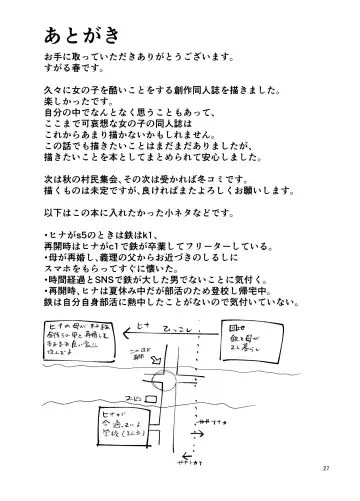 あとがき
お手に取っていただきありがとうございます。
すがる春です。
久々に女の子を酷いことをする創作同人誌を描きました。
楽しかったです。
自分の中でなんとなく思うこともあって、
ここまで可哀想な女の子の同人誌は
これからあまり描かないかもしれません。
この話でも描きたいことはまだまだありましたが、
描きたいことを本としてまとめられて安心しました。
次は秋の村民集会、その次は受かれば冬コミです。
描くものは未定ですが、良ければまたよろしくお願いします。
以下はこの本に入れたかった小ネタなどです。
・ヒナがs5のときは鉄はk1、
再開時はヒナがc1で鉄が卒業してフリーターしている。
・母が再婚し、義理の父からお近づきのしるしに
スマホをもらってすぐに懐いた。
・時間経過とSNSで鉄が大した男でないことに気付く。
・再開時、ヒナは夏休み中だが部活のため登校し帰宅中。
鉄は自分自身部活に熱中したことがないので気付いていない。
ヒナの母が
再婚して
住んでる
ヒナ
ひっこし
団地
鉄と母が
2人暮らし
コンビニ
ヒナが
今通っている
学校
27